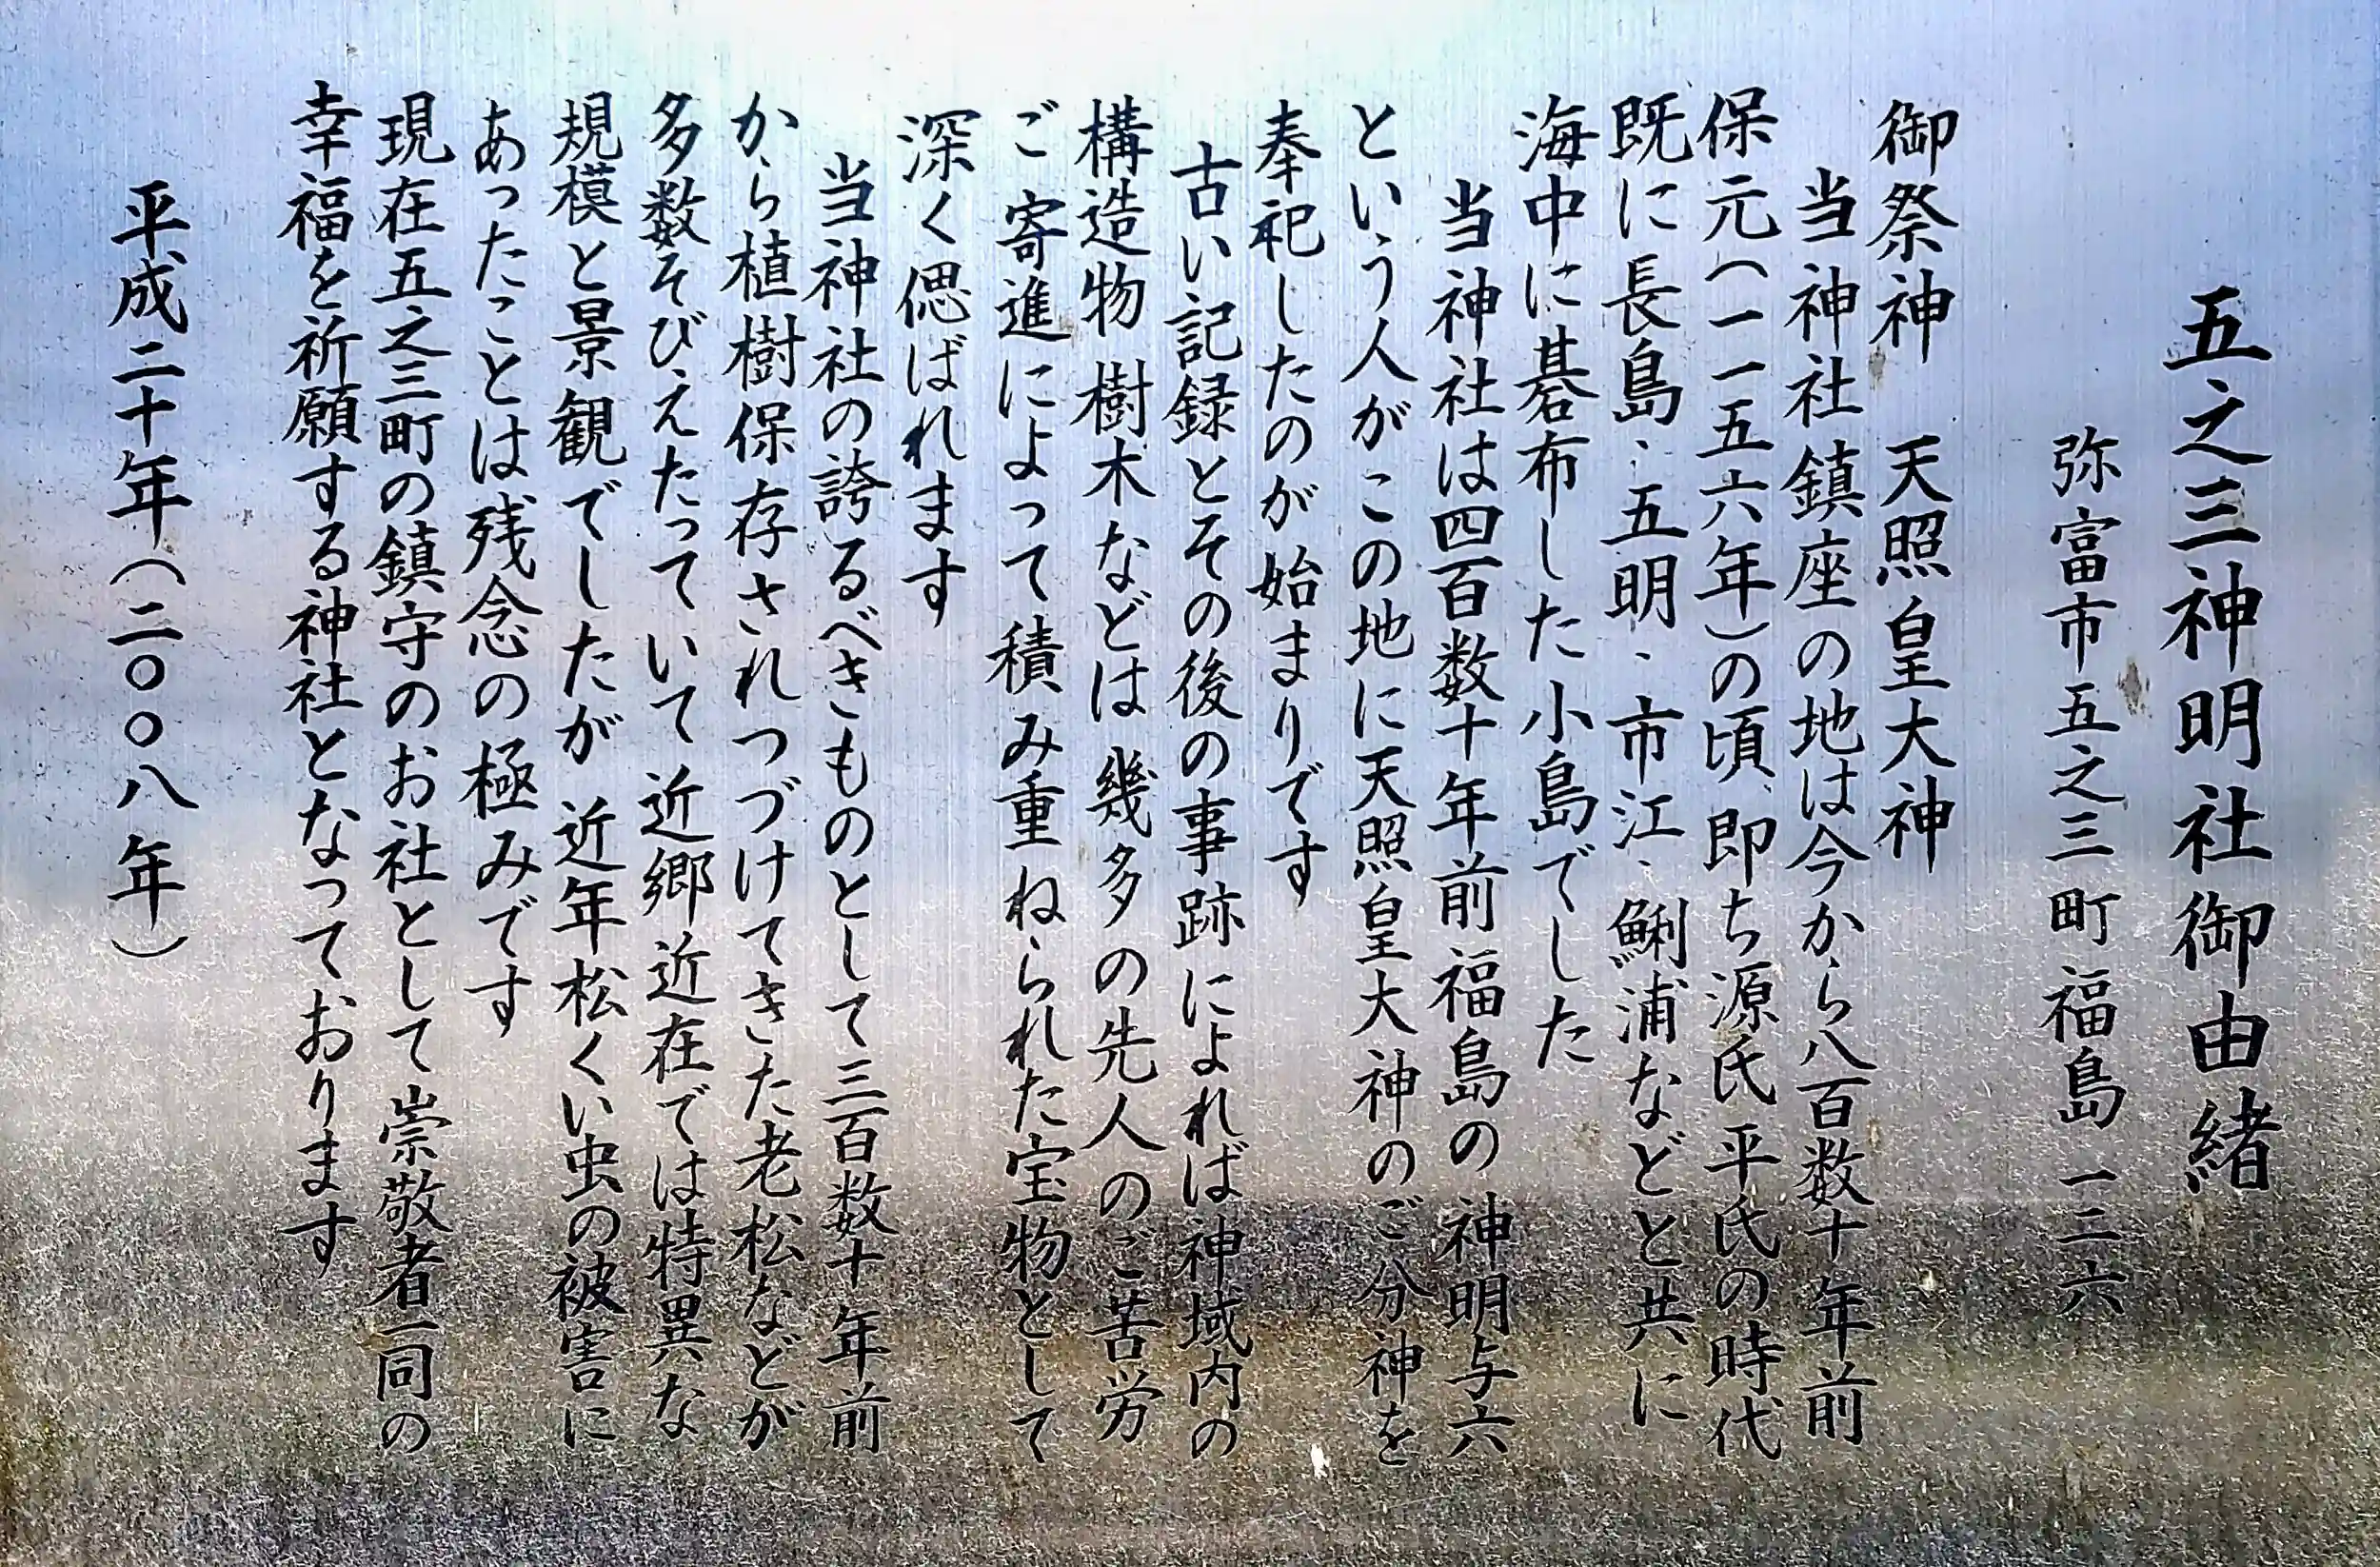 五之三神明社御由緒
弥富市五之三町福島一二六
御祭神　天照皇大神
当神社鎮座の地は今から八百数十年前
保元(一一五六年)の頃、即ち源氏平氏の時代
既に長島、五明、市江、鯏浦などと共に
海中に碁布した小島でした
当神社は四百数十年前福島の神明与六
という人がこの地に天照皇大神のご分神を
奉祀したのが始まりです
古い記録とその後の事跡によれば神域内の
構造物樹木などは幾多の先人のご苦労
ご寄進によって積み重ねられた宝物として
深く偲ばれます
当神社の誇るべきものとして三百数十年前
から植樹保存されつづけてきた老松などが
多数そびえたっていて近郷近在では特異な
規模と景観でしたが近年松くい虫の被害に
あったことは残念の極みです
現在五之三町の鎮守のお社として崇敬者一同の
幸福を祈願する神社となっております
平成二十年(二〇〇八年)